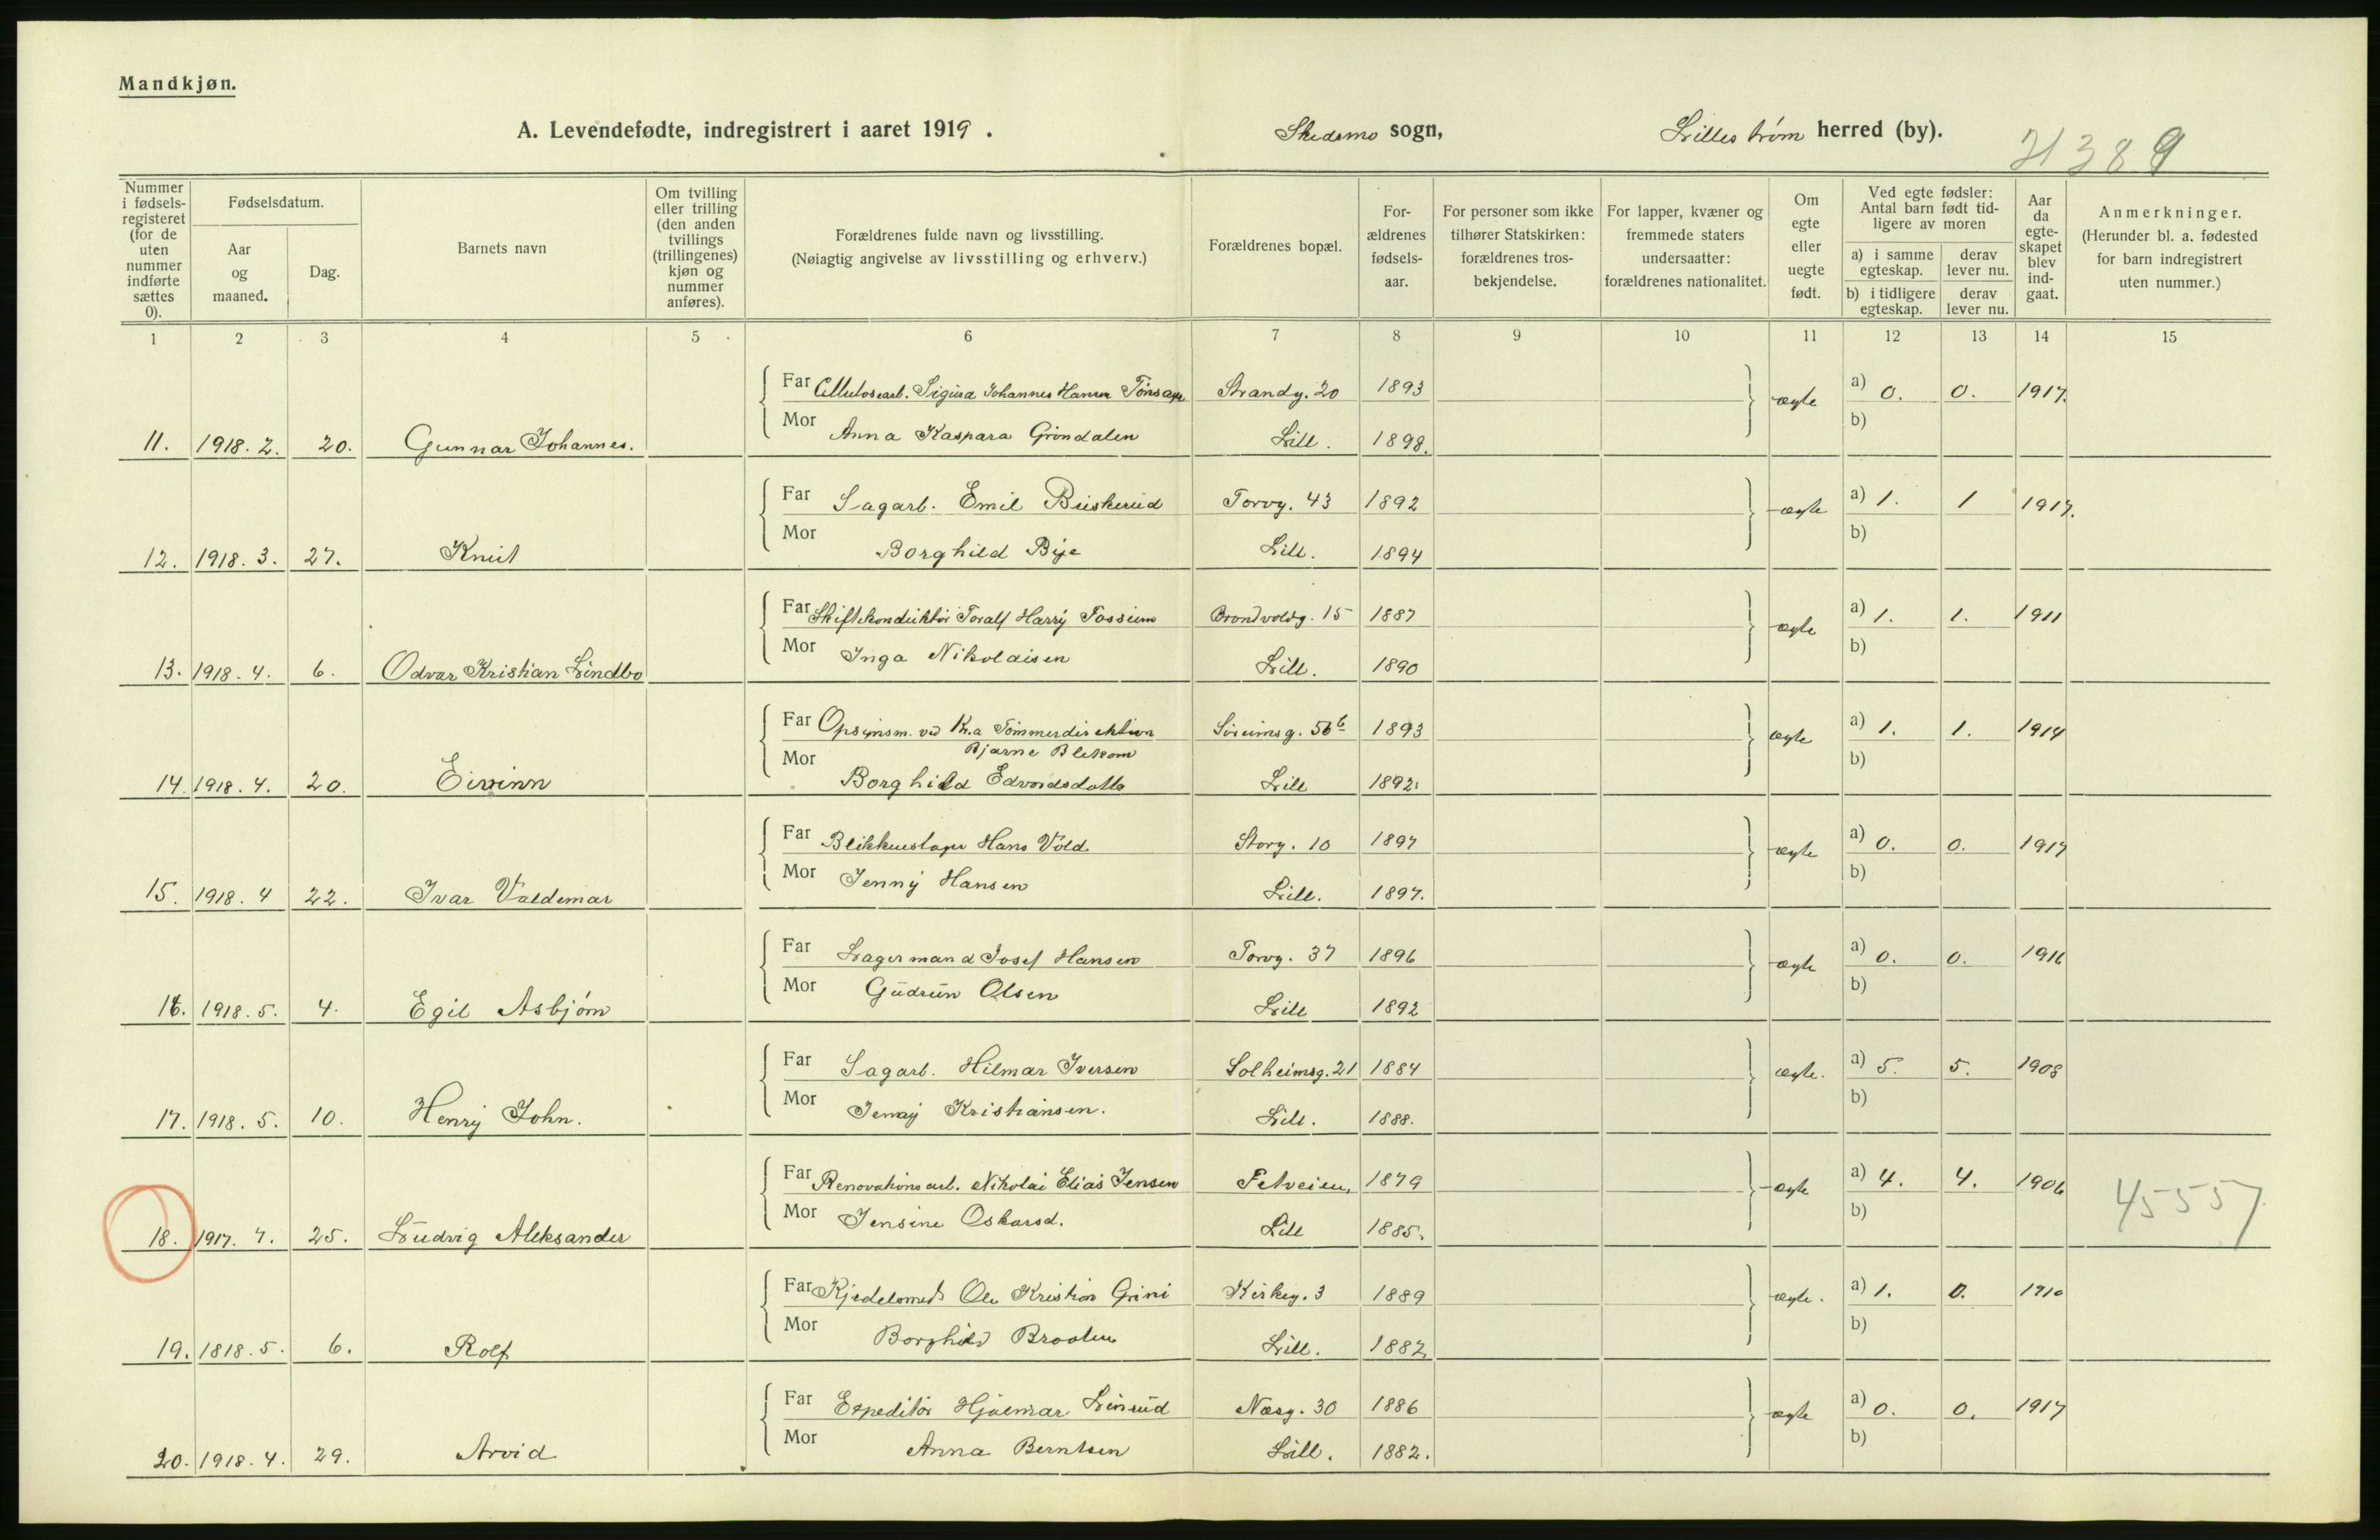 Mandkjøn.
A. Levendefødte, indregistrert i aaret 1919. Skedsmo sogn, Lillestrøm herred (by).
21389
Nummer i fødsels-registeret (for de uten nummer indførte sættes 0).
Fødselsdatum.
Aar og maaned.
Dag.
Barnets navn
Om tvilling eller trilling (den anden tvillings (trillingenes) kjøn og nummer anføres).
Forældrenes fulde navn og livsstilling.
(Nøiagtig angivelse av livsstilling og erhverv.)
Forældrenes bopæl.
For-ældrenes fødsels-aar.
For personer som ikke tilhører Statskirken: forældrenes tros-bekjendelse.
For lapper, kvæner og fremmede staters undersaatter: forældrenes nationalitet.
Om egte eller uegte født.
Ved egte fødsler: Antal barn født tid-ligere av moren
a) i samme egteskap. derav lever nu.
b) i tidligere egteskap. derav lever nu.
Aar da egte-skapet blev ind-gaat.
Anmerkninger.
(Herunder bl. a. fødested for barn indregistrert uten nummer.)
1 2 3 4 5 6 7 8 9 10 11 12 13 14 15
Far Sigurd Johannes Hansen Strandg. 20 1893 ægte a) 0. 0. 1917.
Mor Anna Kaspara Grøndalen Lill. 1898. b)
11. 1918. 2. 20. Gunnar Johannes.
Far Sagarb. Emil Buskerud Torvg. 43 1892 ægte a) 1. 1 1917.
Mor Borghild Bye Lill. 1894 b)
12. 1918. 3. 27. Knut
Far Skiftekonduktør Toralf Harry Fossum 15 1887 ægte a) 1. 1. 1911
Mor Inga Nikolaisen Lill. 1890 b)
13. 1918. 4. 6. Odvar Kristian Lindbo
Far Opsynsm. ved Kr.a Tømmerdirektion 1893 ægte a) 1. 1. 1914
Bjarne
Mor Borghild Lill 1892. b)
14. 1918. 4. 20. Eivinn
Far Blikkenslager Hans Vold Storg. 10 1897 ægte a) 0. 0. 1917
Mor Jenny Hansen Lill. 1897. b)
15. 1918. 4 22. Ivar Valdemar
Far Lagermand Josef Hansen Torvg. 37 1896 ægte a) 0. 0. 1916
Mor Gudrun Olsen Lill 1892 b)
16. 1918. 5. 4. Egil Asbjørn
Far Sagarb. Hilmar Iversen Solheimsg. 21 1884 ægte. a) 5. 5. 1908
Mor Jenny Kristiansen. Lill. 1888. b)
17. 1918. 5. 10. Henry John.
Far Renovationsarb. Nikolai Elias Jensen Fetveien, 1879 ægte a) 4. 4. 1906 45557
Mor Jensine Oskarsd. Lill 1885. b)
18. 1917. 7. 25. Ludvig Aleksander
Far Kjedelsmed Ole Kristian Grini Kirkeg. 3 1889 ægte. a) 1. 0. 1910
Mor Borghild Braaten Lill. 1882 b)
19. 1818. 5. 6. Rolf
Far Expeditør Hjalmar Linrud Næsg. 30 1886 ægte a) 0. 0. 1917
Mor Anna Berntsen Lill. 1882. b)
20. 1918. 4. 29. Arvid